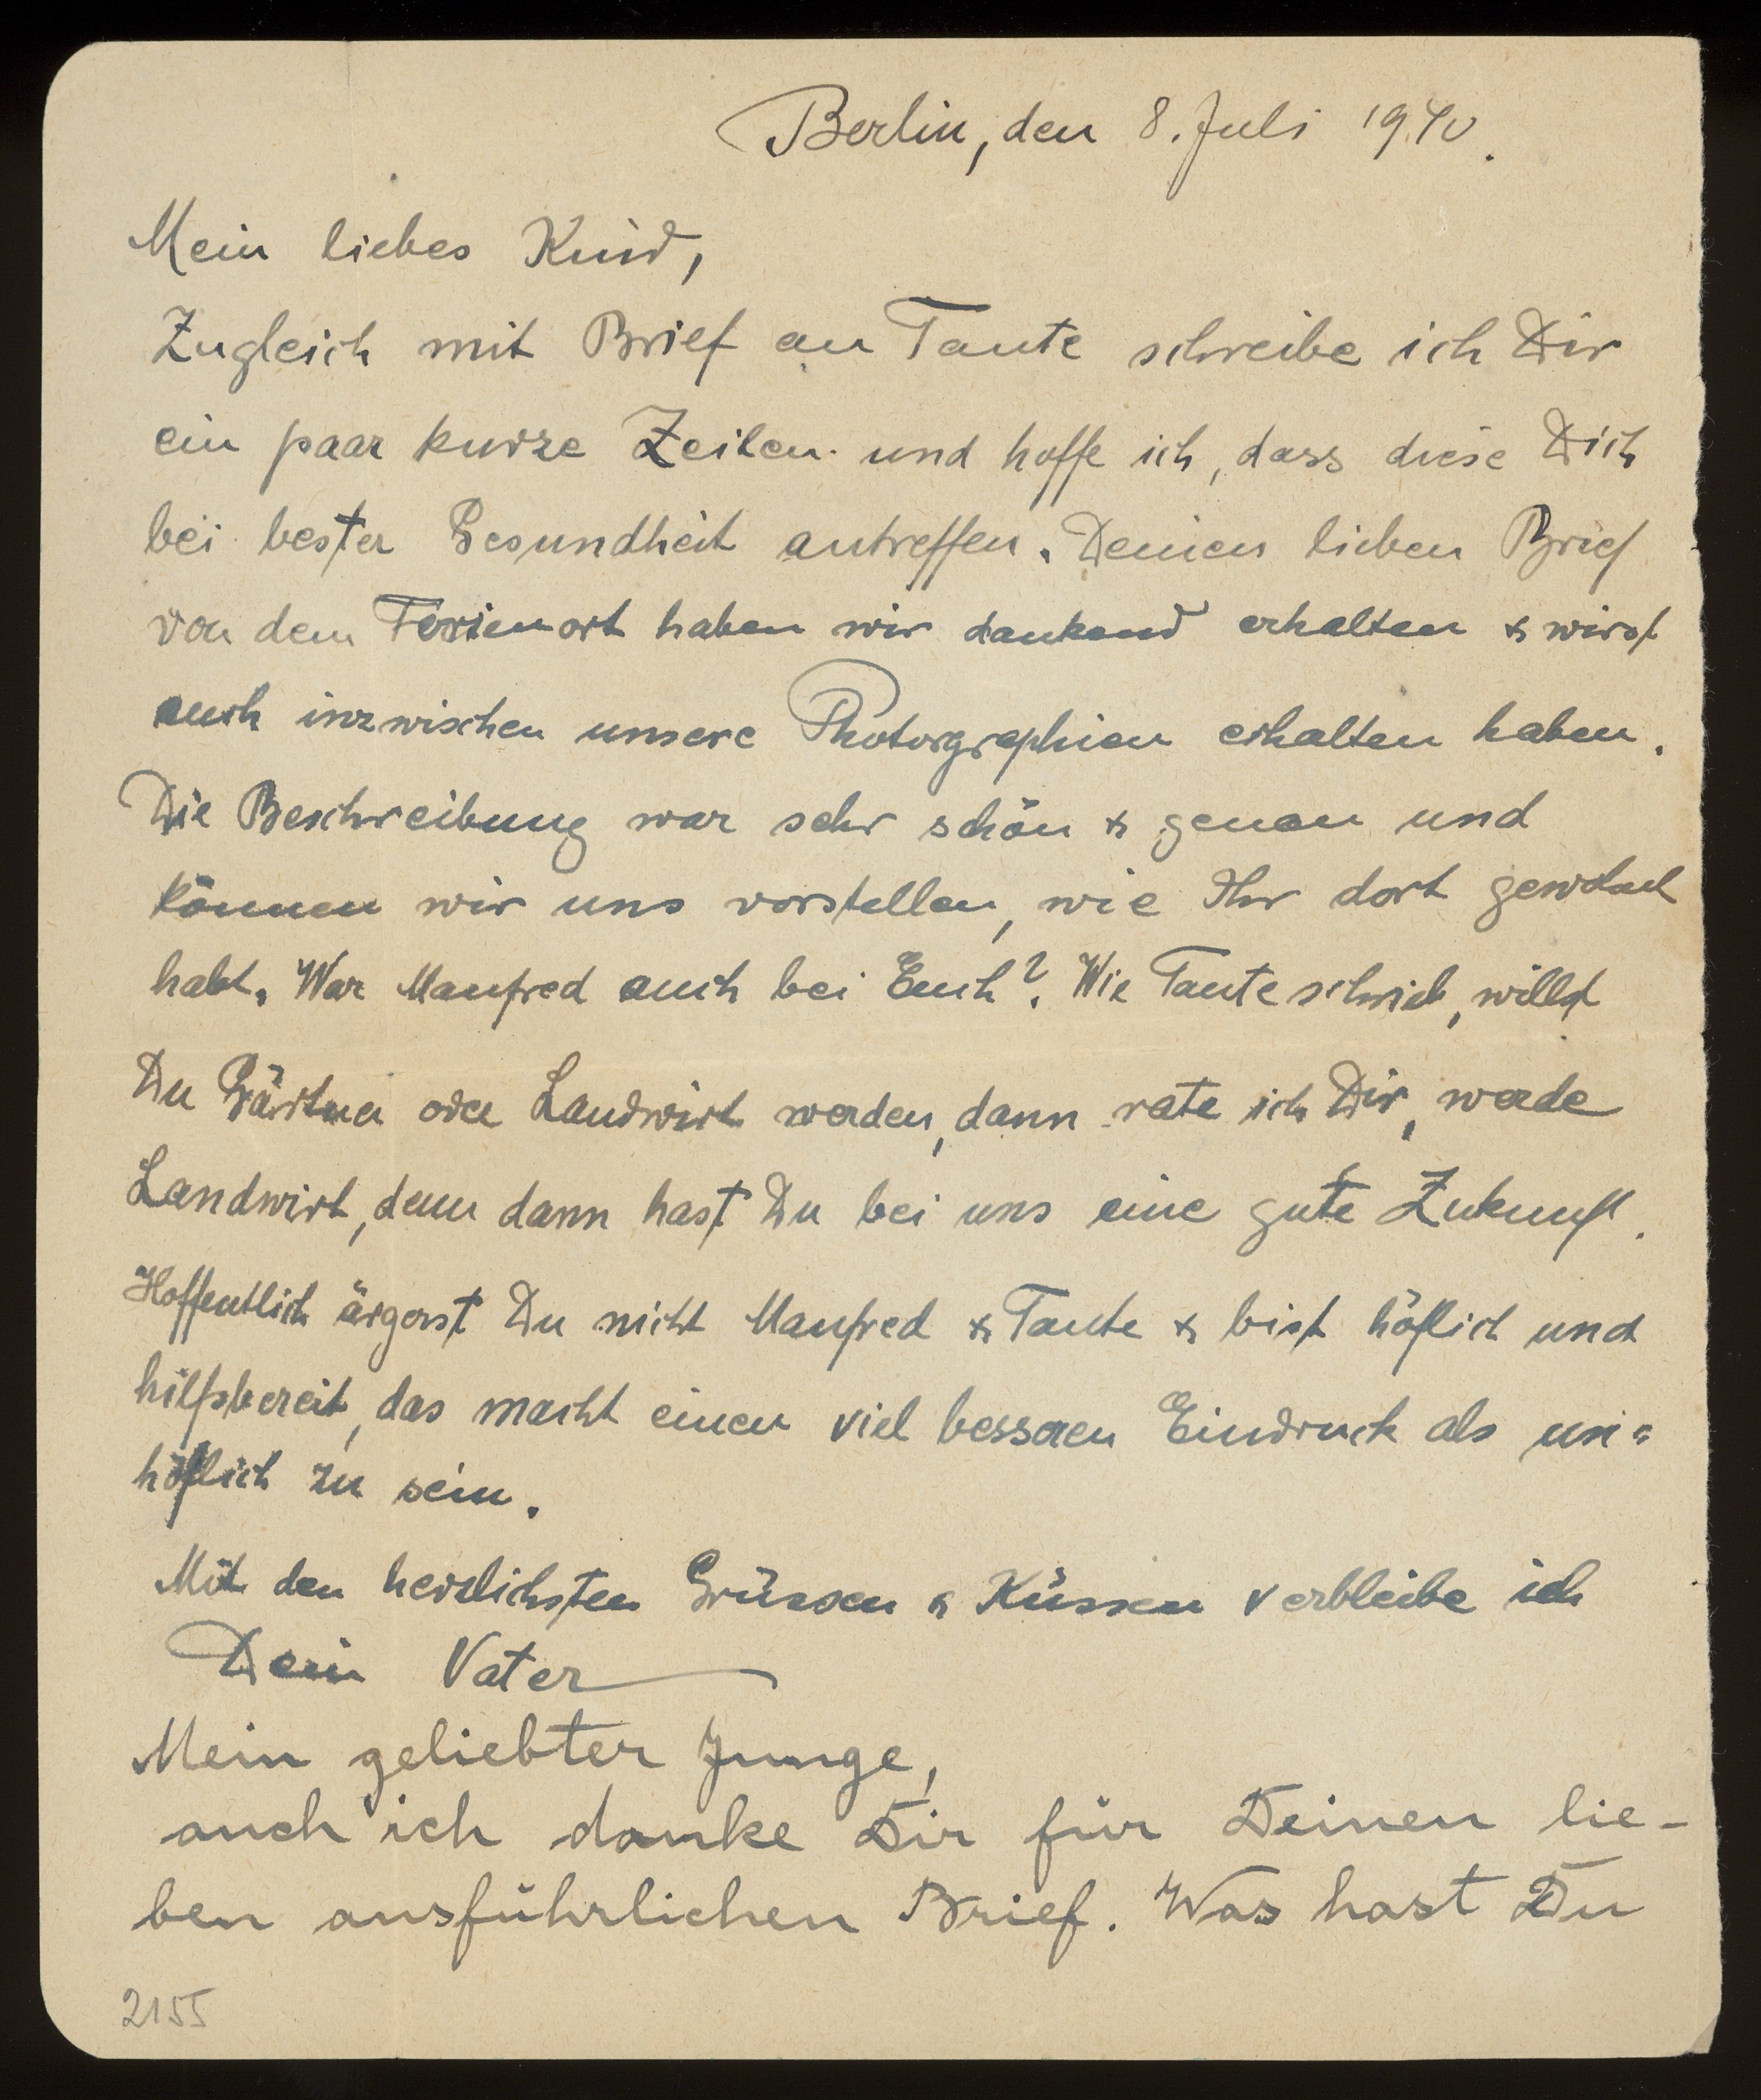 Berlin, den 8. Juli 1940.
Mein liebes Kind,
Zugleich mit Brief an Tante schreibe ich Dir
ein paar kurze Zeilen und hoffe ich, dass diese Dich
bei bester Gesundheit antreffen. Deinen lieben Brief
von dem Ferienort haben wir dankend erhalten & wirst
auch inzwischen unsere Photorgraphien erhalten haben.
Die Beschreibung war sehr schön & genau und
können wir uns vorstellen, wie Ihr dort gewohnt
habt. War Manfred auch bei Euch? Wie Tante schrieb, willst
Du Gärtner oder Landwirt werden, dann rate ich Dir, werde
Landwirt, denn dann hast Du bei uns eine gute Zukunft.
Hoffentlich ärgerst Du nicht Manfred & Tante & bist höflich und
hilfsbereit, das macht einen viel besseren Eindruck als un=
höflich zu sein.
Mit den herzlichsten Grüssen & Küssen verbleibe ich
Dein Vater
Mein geliebter Junge,
auch ich danke Dir für Deinen lie-
ben ausführlichen Brief. Was hast Du
2155